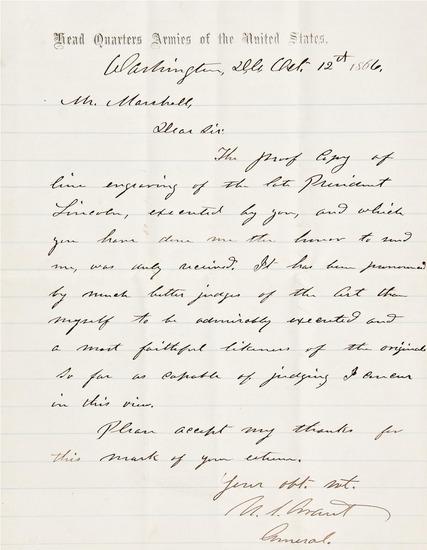 Head Quarters Armies of the United States.
Washington, D.C. Oct. 12th 1866.
Mr. Marshall,
Dear Sir:
The proof copy of
line engraving of the late President
Lincoln, executed by you, and which
you have done me the honor to send
me, was duly received. It has been pronounced
by much better judges of the art than
myself to be admirably executed and
a most faithful likeness of the original.
So far as capable of judging I concur
in this view.
Please accept my thanks for
this mark of your esteem.
Your obt. svt.
U. S. Grant
General.